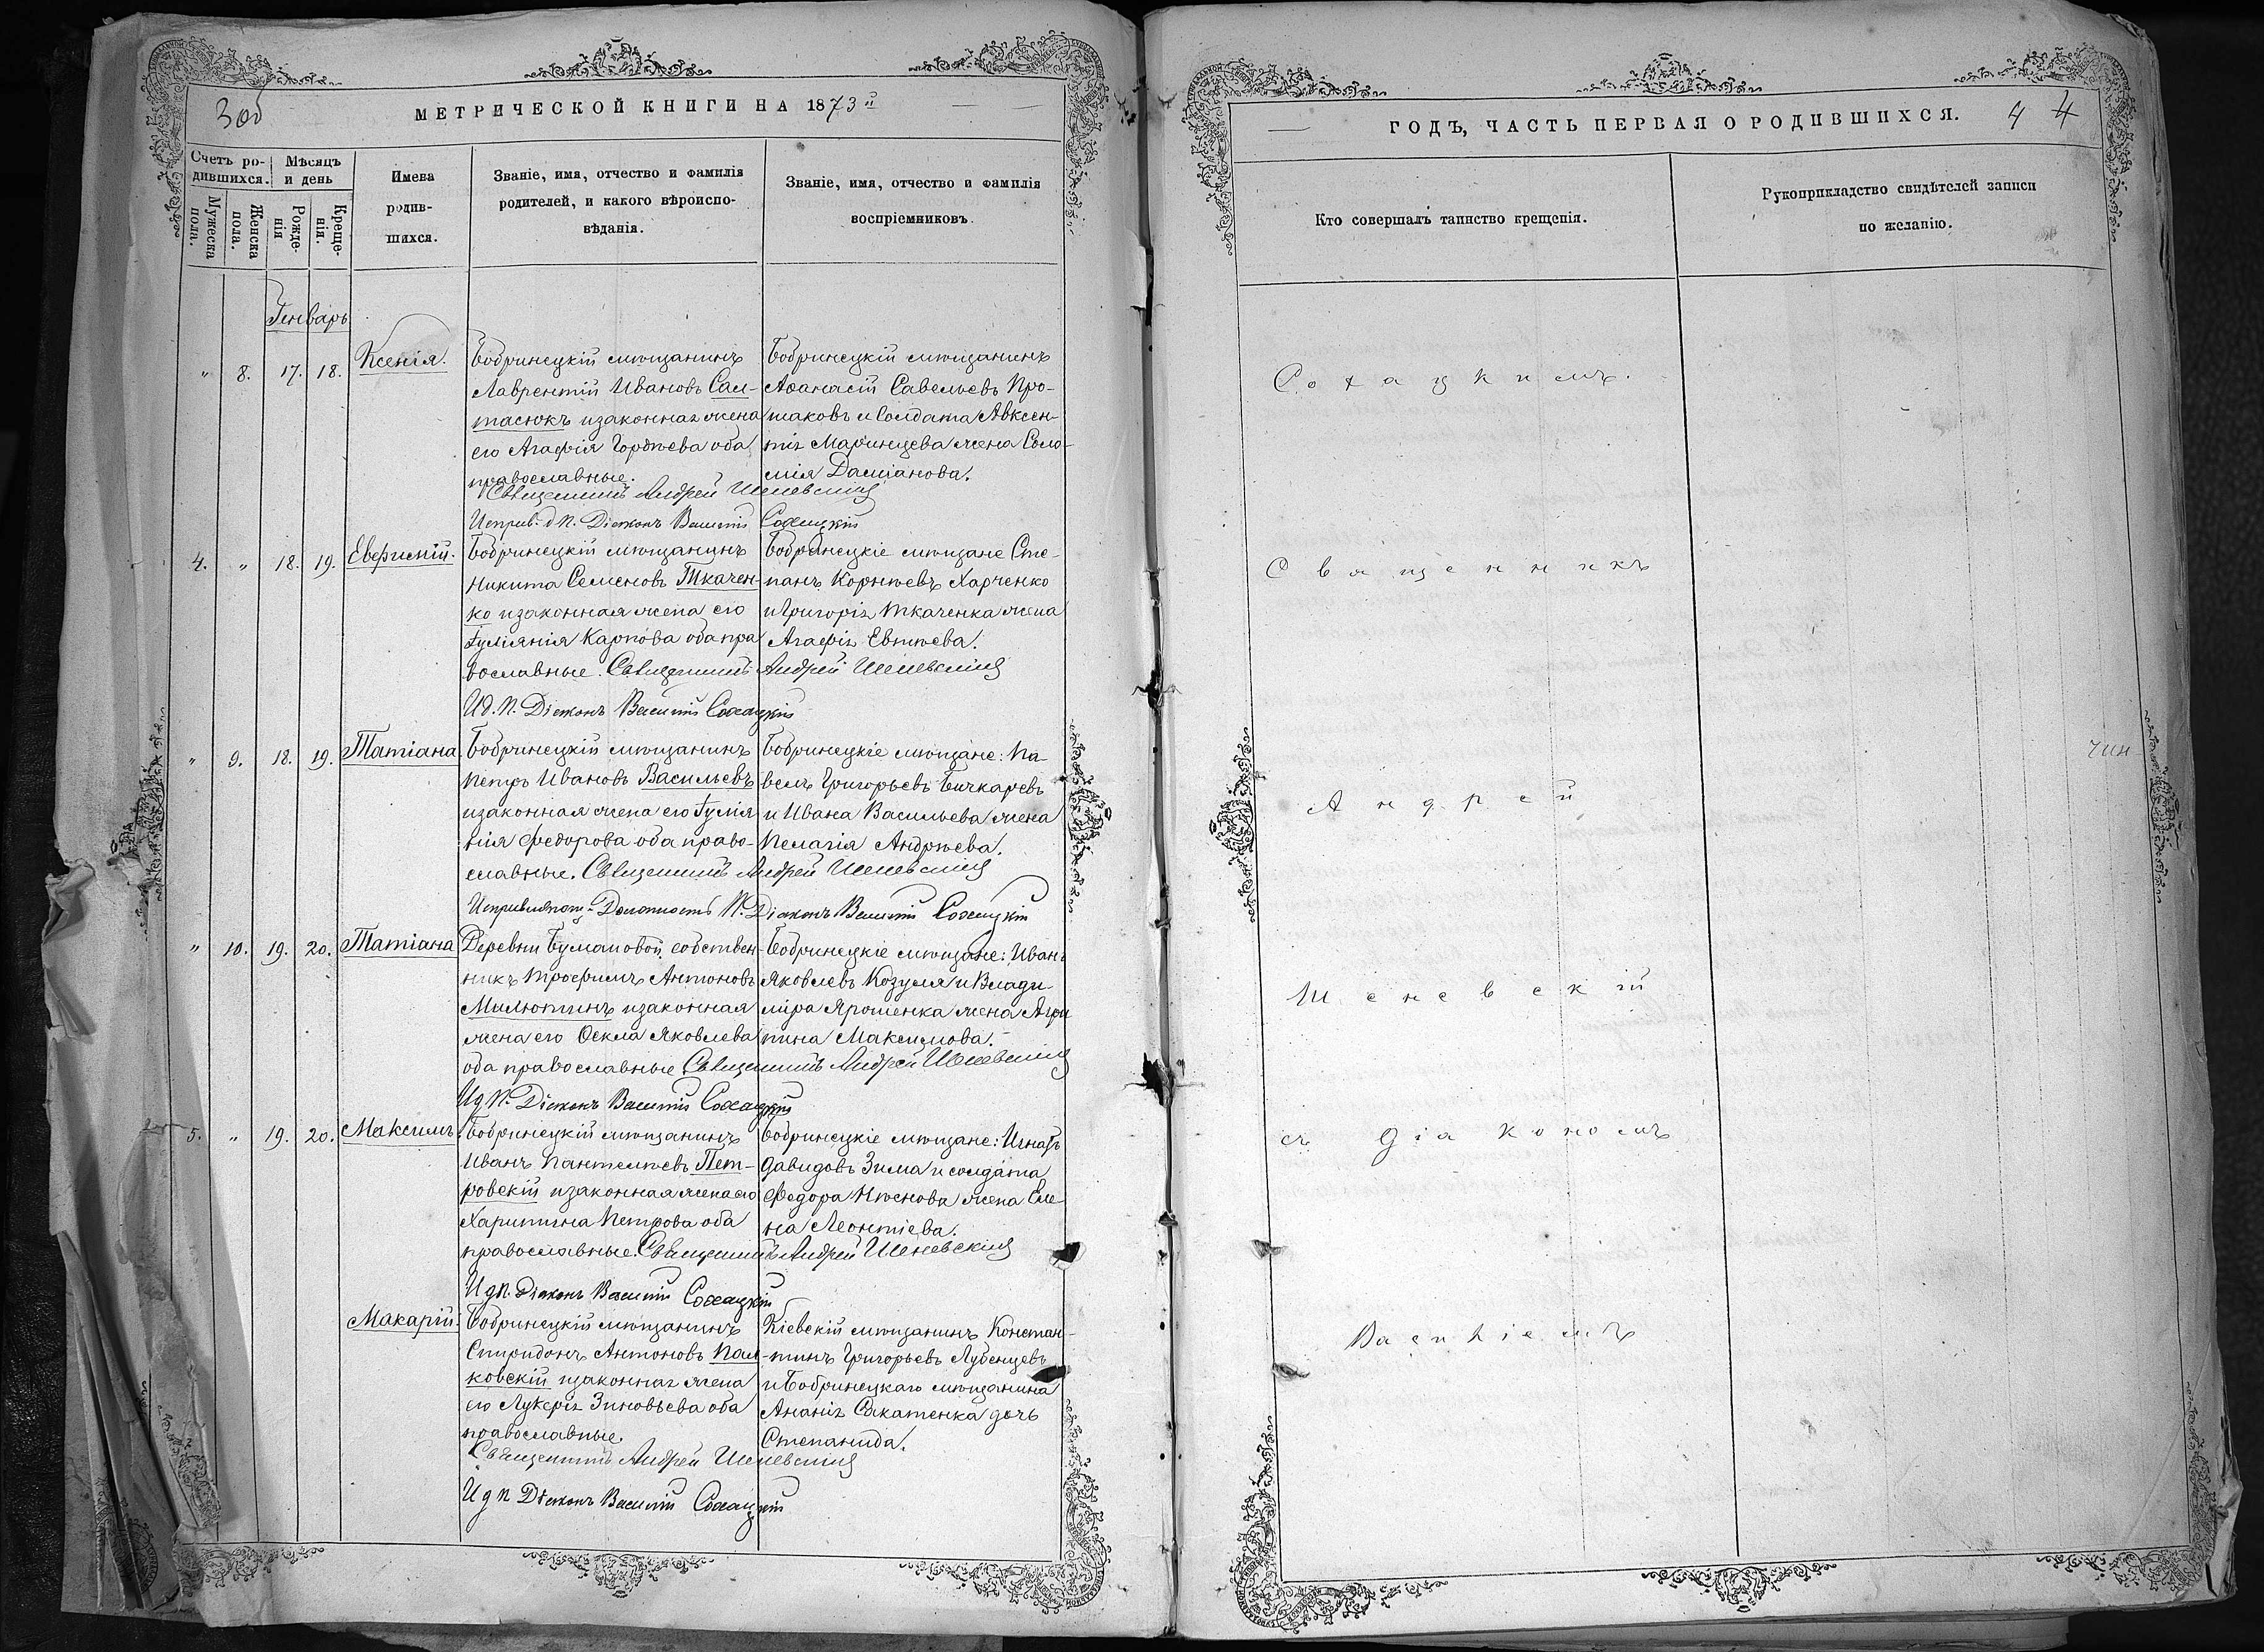 300
МЕТРИЧЕСКОЙ КНИГИ НА 1873й
Счетъ ро-
дившихся.
Мѣсяцъ
и день
Мужеска
пола.
Женска
пола.
Рожде-
нія
Креще-
нія.
Имена
родив-
шихся.
Званіе, имя, отчество и фамилія
родителей, и какого вѣроиспо-
вѣданія.
Званіе, имя, отчество и фамилія
воспріемниковъ.
Генварь
" 8. 17. 18. Ксенія.
Бобринецкій мѣщанинъ
Лаврентій Ивановъ Сал-
тасюкъ и законная жена
его Агафія Гордѣева оба
православные.
Бобринецкій мѣщанинъ
Аѳанасій Савельевъ Про-
шаковъ и Солдата Авксен-
тія Маринцева жена Соло-
мія Даміанова.
Священникъ Андрей Шеневскій
Исправ. д п. Діаконъ Василій Сохацкій
4. " 18. 19. Евфимій.
Бобринецкій мѣщанинъ
Никита Семеновъ Ткачен-
ко и законная жена его
Іуліянія Карпова оба пра
вославные.
Бобринецкіе мѣщане Сте-
панъ Корнѣевъ Харченко
и Григорія Ткаченка жена
Агафія Евтѣева.
Священникъ Андрей Шеневскій
И д. п. Діаконъ Василій Сохацкій
" 9. 18. 19. Татіана
Бобринецкій мѣщанинъ
Петръ Ивановъ Васильевъ
и законная жена его Іулія
нія Федорова оба право-
славные.
Бобринецкіе мѣщане: Па-
велъ Григорьевъ Бичкаревъ
и Ивана Васильева жена
Пелагія Андрѣева.
Священникъ Андрей Шеневскій
Исправляющ. Должность П. Діаконъ Василій Сохацкій
" 10. 19. 20. Татіана
Деревни собствен-
никъ Трофимъ Антоновъ
Милютинъ и законная
жена его Ѳекла Яковлева
оба православные
Бобринецкіе мѣщане: Иванъ
Яковлевъ Козуля и Влади-
міра Ярошенка жена Агри
пина Максимова.
Священникъ Андрей Шеневскій
И д п. Діаконъ Василій Сохацкій
5. " 19. 20. Максимъ.
Бобринецкій мѣщанинъ
Иванъ Пантелѣевъ Пет-
ровскій и законная жена его
Харитина Петрова оба
православные.
Бобринецкіе мѣщане: Игнатъ
Давидовъ Зима и солдата
Федора жена Еле
на Леонтіева.
Священникъ Андрей Шеневскій
И д п. Діаконъ Василій Сохацкій
Макарій.
Бобринецкій мѣщанинъ
Спиридонъ Антоновъ Пал-
ковскій и законная жена
его Лукерія Зиновьева оба
православные.
Кіевскій мѣщанинъ Констан-
тинъ Григорьевъ Лубенцевъ
и Бобринецкаго мѣщанина
Ананія Сакатенка дочь
Степанида.
Священникъ Андрей Шеневскій
И д п Діаконъ Василій Сохацкій
ГОДЪ, ЧАСТЬ ПЕРВАЯ О РОДИВШИХСЯ.
4 4
Кто совершалъ таинство крещенія.
Рукоприкладство свидѣтелей записи
по желанію.
Сохацкимъ.
Священникъ
Андрей
Шеневскій
съ діакономъ
Василіемъ